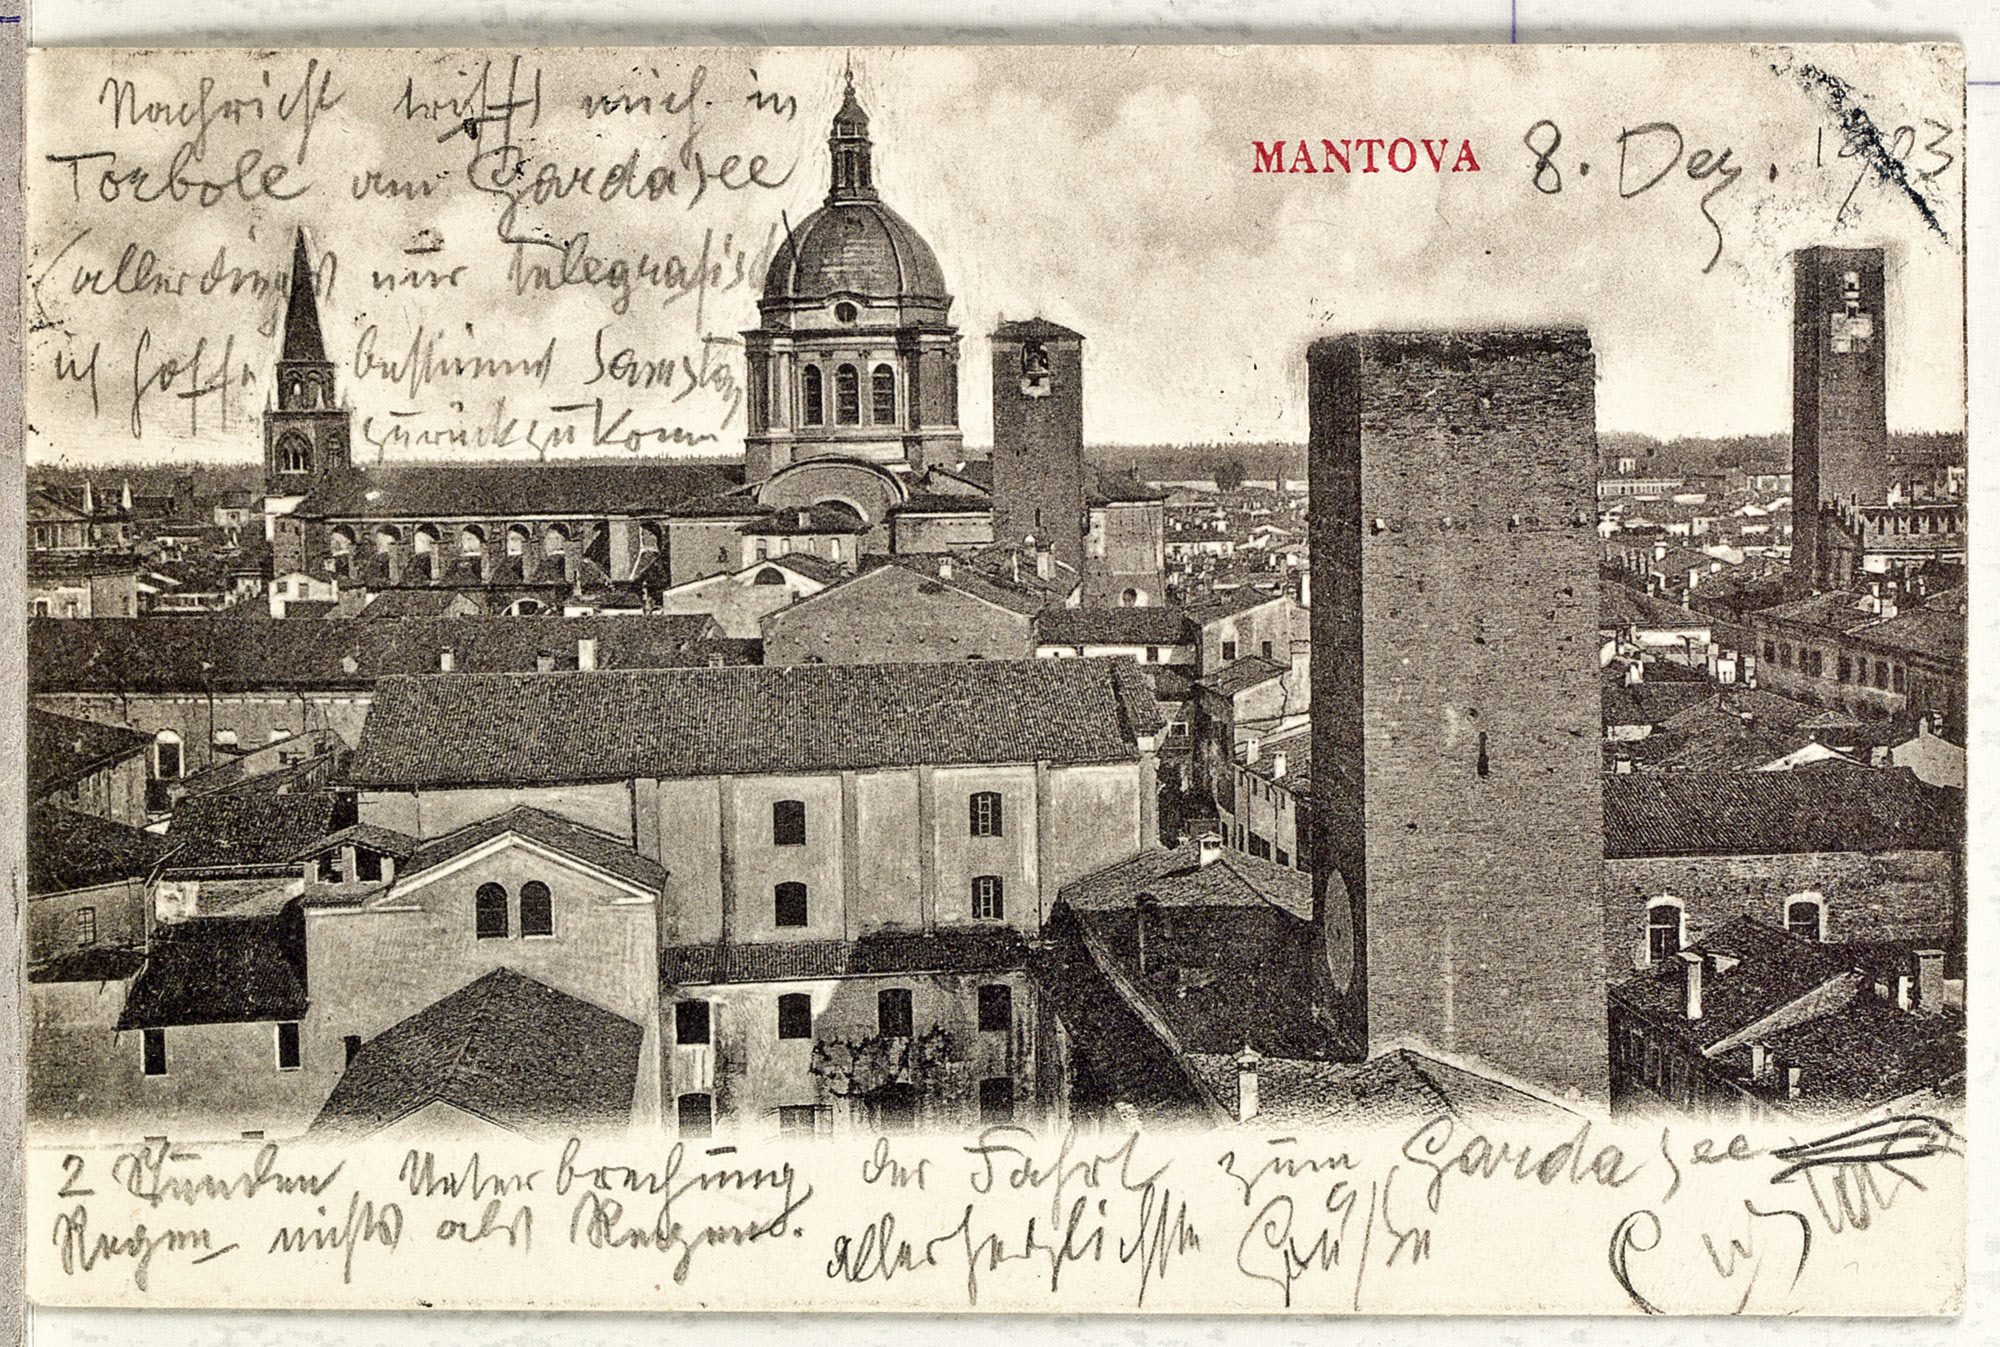 Nachricht trifft mich in
Torbole am Gardasee
(allerdings nur telegrafisch
ich hoffe bestimmt Samstag
zurückzukomm
MANTOVA 8. Dez. 1903
2 Stunden Unterbrechung der Fahrt zum Gardasee
Regen nichts als Regen. allerherzlichste Grüße